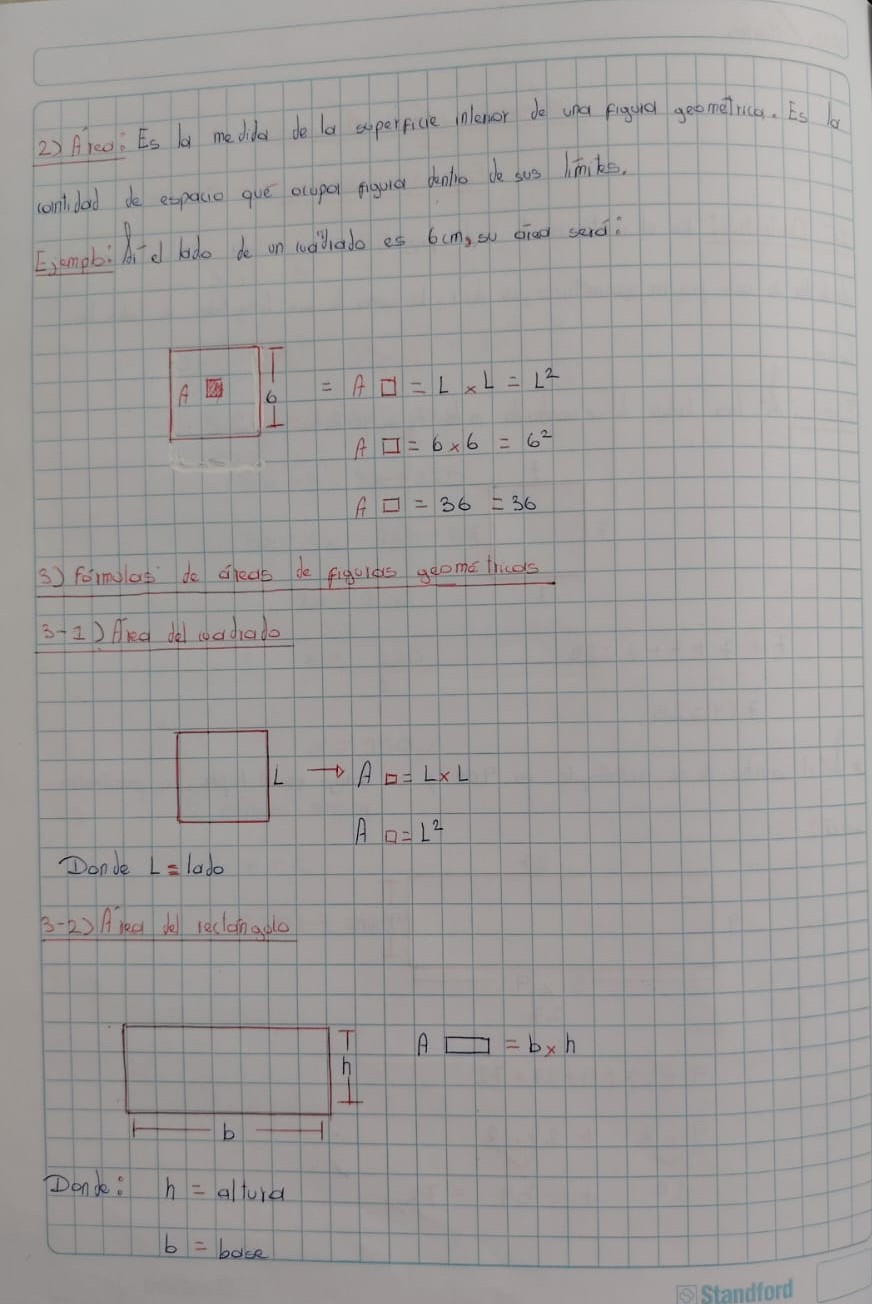 2) Área: Es la medida de la superficie interior de una figura geométrica. Es la
cantidad de espacio que ocupa figura dentro de sus límites.
Ejemplo: Si el lado de un cuadrado es 6cm, su área será:
A 6 = A □ = L × L = L²
A □ = 6 × 6 = 6²
A □ = 36 = 36
3) Fórmulas de áreas de figuras geométricas
3-1) Área del cuadrado
L → A □ = L × L
A □ = L²
Donde L = lado
3-2) Área del rectángulo
h A ▭ = b × h
b
Donde: h = altura
b = base
Standford